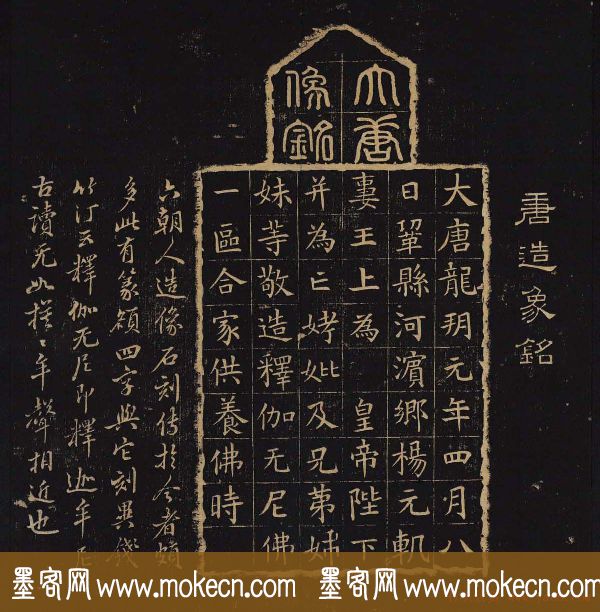 唐造象銘
大唐
像銘
大唐龍朔元年四月八
日鞏縣河濵鄉楊元軌
妻王上為 皇帝陛下
并為亡姥妣及兄弟姊
妹等敬造釋伽无尼佛
一區合家供養佛時
六朝人造像石刻傳於今者頗
多此有篆額四字與它刻異錢
竹汀云釋伽无尼即釋迦牟尼
古讀无如模与牟聲相近也
墨客网 www.mokecn.com 墨客网 www.mokecn.com